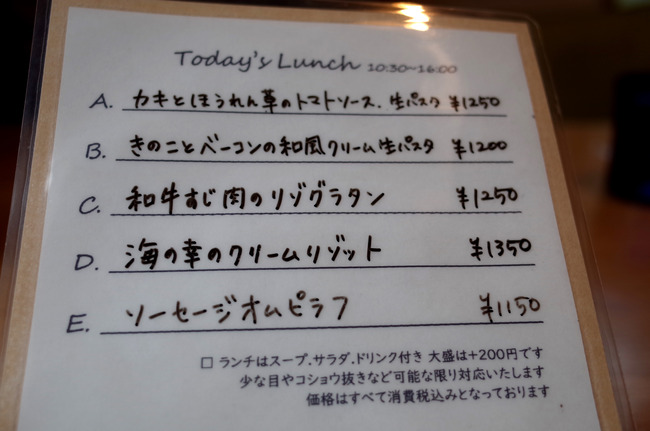 Today's Lunch 10:30~16:00
A. カキとほうれん草のトマトソース.生パスタ ¥1250
B. きのことベーコンの和風クリーム生パスタ ¥1200
C. 和牛すじ肉のリゾグラタン ¥1250
D. 海の幸のクリームリゾット ¥1350
E. ソーセージオムピラフ ¥1150
□ ランチはスープ.サラダ.ドリンク付き 大盛は+200円です
少な目やコショウ抜きなど可能な限り対応いたします
価格はすべて消費税込みとなっております